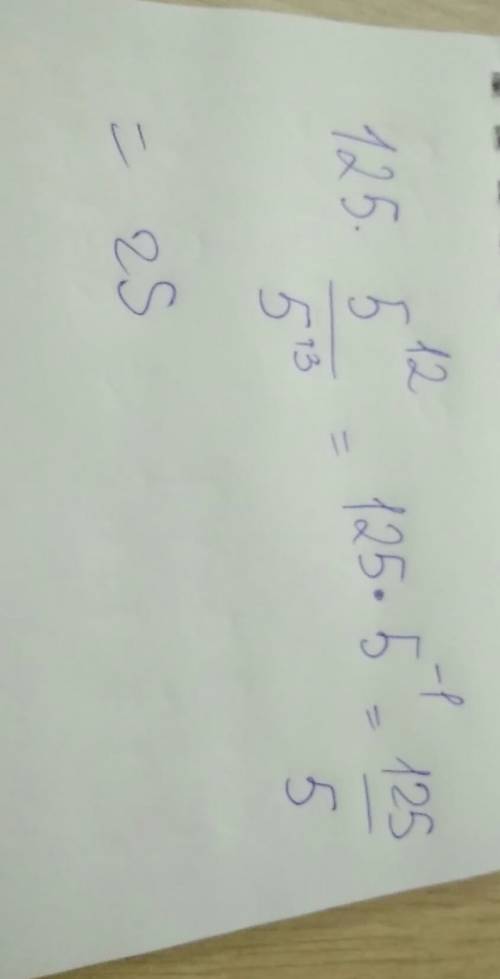 125 · 5^12 / 5^13 = 125 · 5^-1 = 125 / 5
= 25